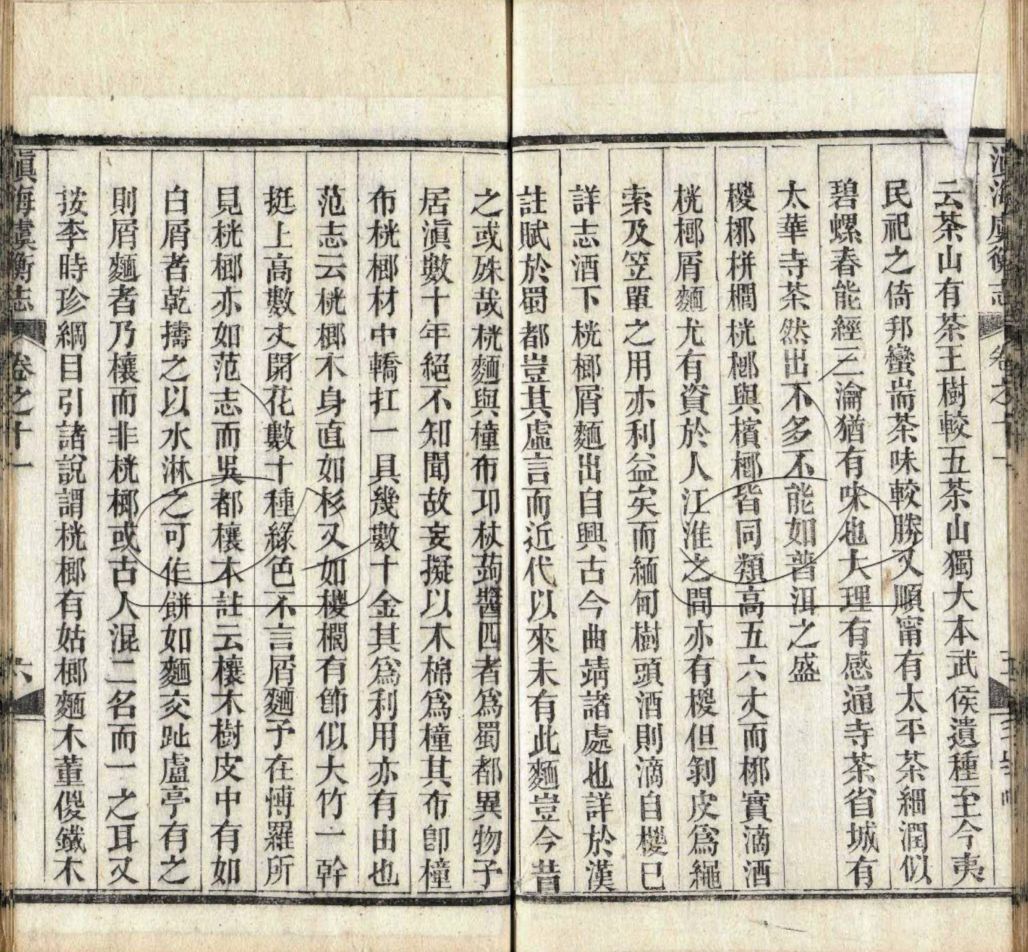 滇海虞衡志 卷之十一
云茶山有茶王樹較五茶山獨大本武侯遺種至今夷
民祀之倚邦蠻耑茶味較勝又順甯有太平茶細潤似
碧螺春能經三瀹猶有味也大理有感通寺茶省城有
太華寺茶然出不多不能如普洱之盛
椶桹栟櫚桄榔與檳榔皆同類高五六丈而桹實滴酒
桄榔屑麵尤有資於人江淮之間亦有椶但剝皮爲繩
索及笠單之用亦利益矣而緬甸樹頭酒則滴自椶已
詳志酒下桄榔屑麵出自興古今曲靖諸處也詳於漢
註賦於蜀都豈其虛言而近代以來未有此麵豈今昔
之或殊哉桄麵與橦布卭杖蒟醬四者爲蜀都異物子
居滇數十年絕不知聞故妄擬以木棉爲橦其布卽橦
布桄榔材中轎扛一具幾數十金其爲利用亦有由也
范志云桄榔木身直如杉又如椶櫚有節似大竹一幹
挺上高數丈開花數十種綠色不言屑麵予在愽羅所
見桄榔亦如范志而吳都欀本註云欀木樹皮中有如
白屑者乾擣之以水淋之可作餅如麵交趾盧亭有之
則屑麵者乃欀而非桄榔或古人混二名而一之耳又
按李時珍綱目引諸說謂桄榔有姑榔麵木董㯶鐵木
滇海虞衡志 卷之十一 六